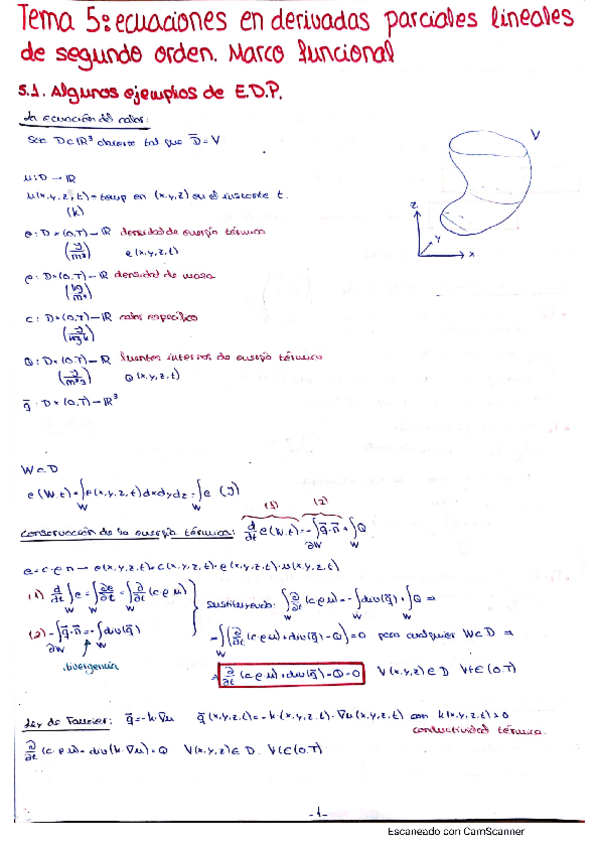 Tema 5: ecuaciones en derivadas parciales lineales
de segundo orden. Marco funcional
5.1. Algunos ejemplos de E.D.P.
La ecuación del calor:
Sea D⊂ℝ³ abierto tal que D̄=V
V
u: D → ℝ
u(x,y,z,t) = temp en (x,y,z) en el instante t.
(k)
z
y
x
e: D×(0,T)→ℝ densidad de energía térmica
(J/m³) e(x,y,z,t)
ρ: D×(0,T)→ℝ densidad de masa
(kg/m³)
c: D×(0,T)→ℝ calor específico
(J/kg k)
Q: D×(0,T)→ℝ fuentes internas de energía térmica
(J/m³s) Q(x,y,z,t)
q̄: D×(0,T)→ℝ³
W⊂D
e(W,t)=∫_W e(x,y,z,t)dxdydz=∫_W e (J)
(1) (2)
Conservación de la energía térmica: d/dt e(W,t)=-∫_∂W q̄·n̄+∫_W Q
e=c·ρ·u → e(x,y,z,t)=c(x,y,z,t)·ρ(x,y,z,t)·u(x,y,z,t)
(1) d/dt ∫_W e=∫_W ∂e/∂t=∫_W ∂/∂t (cρu)
Sustituyendo: ∫_W ∂/∂t (cρu)=-∫_W div(q̄)+∫_W Q ⇒
(2) -∫_∂W q̄·n̄=-∫_W div(q̄)
divergencia
-∫_W (∂/∂t (cρu)+div(q̄)-Q)=0 para cualquier W⊂D ⇒
⇒ ∂/∂t (cρu)+div(q̄)-Q=0 ∀(x,y,z)∈D ∀t∈(0,T)
Ley de Fourier: q̄=-k·∇u q̄(x,y,z,t)=-k(x,y,z,t)·∇u(x,y,z,t) con k(x,y,z,t)>0
conductividad térmica.
∂/∂t (c·ρ·u)-div(k·∇u)=Q ∀(x,y,z)∈D. ∀t∈(0,T)
-1-
Escaneado con CamScanner